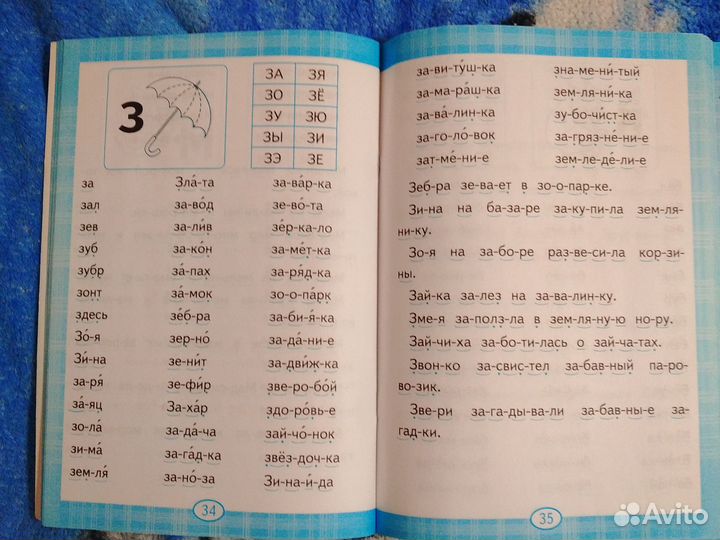 З
ЗА ЗЯ
ЗО ЗЁ
ЗУ ЗЮ
ЗЫ ЗИ
ЗЭ ЗЕ
за Зла́-та за-ва́р-ка
зал за-во́д зе-во́-та
зев за-ли́в зе́р-ка-ло
зуб за-ко́н за-ме́т-ка
зубр за́-пах за-ря́д-ка
зонт за́-мок зо-о-па́рк
здесь зе́б-ра за-би-я́-ка
Зо́-я зер-но́ за-да́-ни-е
Зи́-на зе-ни́т за-дви́ж-ка
за-ря́ зе-фи́р зве-ро-бо́й
за́-яц За-ха́р здо-ро́вь-е
зо-ла́ за-да́-ча зай-чо́-нок
зи-ма́ за-га́д-ка звёз-доч-ка
зем-ля́ за-но́-за Зи-на-и́-да
34
за-ви-ту́ш-ка зна-ме-ни́-тый
за-ма-ра́ш-ка зем-ля-ни́-ка
за-ва́-лин-ка зу-бо-чи́ст-ка
за-го-ло́-вок за-гряз-не́-ни-е
зат-ме́-ни-е зем-ле-де́-ли-е
Зеб-ра зе-ва-ет в зо-о-пар-ке.
Зи-на на ба-за-ре за-ку-пи-ла зем-ля-
ни-ку.
Зо-я на за-бо-ре раз-ве-си-ла кор-зи-
ны.
Зай-ка за-лез на за-ва-лин-ку.
Зме-я за-полз-ла в зем-ля-ну-ю но-ру.
Зай-чи-ха за-бо-ти-лась о зай-ча-тах.
Звон-ко за-свис-тел за-бав-ный па-ро-
во-зик.
Зве-ри за-га-ды-ва-ли за-бав-ны-е за-
гад-ки.
35
Avito